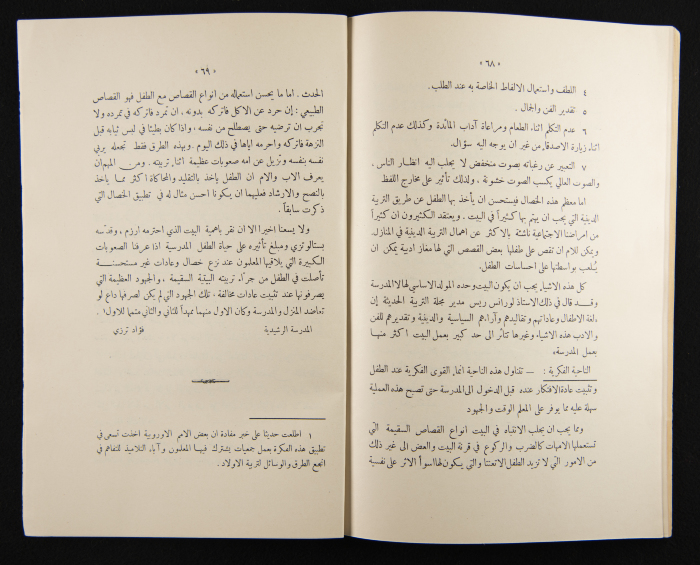 «٦٨»
٤ اللطف واستعمال الالفاظ الخاصة به عند الطلب.
٥ تقدير الفن والجمال.
٦ عدم التكلم اثناء الطعام ومراعاة آداب المائدة وكذلك عدم التكلم
اثناء زيارة الاصدقاء من غير ان يوجه اليه سؤال.
٧ التعبير عن رغباته بصوت منخفض لا يجلب اليه انظار الناس،
والصوت العالي يكسب الصوت خشونة، ولذلك تأثير على مخارج اللفظ
اما معظم هذه الخصال فيستحسن ان يأخذ بها الطفل عن طريق التربية
الدينية التي يجب ان يهتم بها كثيراً في البيت. ويعتقد الكثيرون ان كثيراً
من امراضنا الاجتماعية ناشئة بالاكثر عن اهمال التربية الدينية في المنازل.
ويمكن للام ان تقص على طفلها بعض القصص التي لها مغاز ادبية يمكن ان
يلعب بواسطتها على احساسات الطفل.
كل هذه الاشياء يجب ان يكون البيت وحده المولد الاساسي لها لا المدرسة
وقد قال في ذلك الاستاذ لورانس ريس مدير مجلة التربية الحديثة إن
لغة الاطفال وعاداتهم وتقاليدهم وآراءهم السياسية والدينية وتقديرهم للفن
والادب هذه الاشياء وغيرها تتأثر الى حد كبير بعمل البيت اكثر منها
بعمل المدرسة.
الناحية الفكرية: — تتناول هذه الناحية انماء القوى الفكرية عند الطفل
وتثبيت عادة الافتكار عنده قبل الدخول الى المدرسة حتى تصبح هذه العملية
سهلة عليه مما يوفر على المعلم الوقت والجهود
ومما يجب ان يجلب الانتباه في البيت انواع القصاص السقيمة التي
تستعملها الامهات كالضرب والركوع في قرنة البيت والعض الى غير ذلك
من الامور التي لا تزيد الطفل الا تعنتاً والتي يكون لها اسوأ الاثر على نفسية
«٦٩»
الحدث. اما ما يحسن استعماله من انواع القصاص مع الطفل فهو القصاص
الطبيعي: إن حرد عن الاكل فاتركه بدونه، ان تمرد فاتركه في تمرده ولا
تجرب ان ترضيه حتى يصطلح من نفسه، واذا كان بطيئاً في لبس ثيابه قبل
النزهة فاتركه واحرمه اياها في ذلك اليوم. وبهذه الطرق فقط تجعله يربي
نفسه بنفسه وتزيل عن امه صعوبات عظيمة اثناء تربيته. ومن المهم ان
يعرف الاب والام ان الطفل يأخذ بالتقليد والمحاكاة اكثر مما يأخذ
بالنصح والارشاد فعليهما ان يكونا احسن مثال له في تطبيق الخصال التي
ذكرت سابقاً.
ولا يسعنا اخيراً الا ان نقر باهمية البيت الذي احترمه ارزم، وقدسه
بستالوتزي ومبلغ تأثيره على حياة الطفل المدرسية اذا عرفنا الصعوبات
الكبيرة التي يلاقيها المعلمون عند نزع خصال وعادات غير مستحسنة
تأصلت في الطفل من جراء تربيته البيتية السقيمة، والجهود العظيمة التي
يصرفونها عند تثبيت عادات مخالفة. تلك الجهود التي لم يكن لصرفها داع لو
تعاضد المنزل والمدرسة وكان الاول منهما ممهداً للثاني والثاني متمماً للاول ١.
المدرسة الرشيدية فؤاد ترزي
١ اطلعت حديثاً على خبر مفاده ان بعض الامم الاوروبية اخذت تسعى في
تطبيق هذه الفكرة بعمل جمعيات يشترك فيها المعلمون وآباء التلاميذ للتفاهم في
انجع الطرق والوسائل لتربية الاولاد.